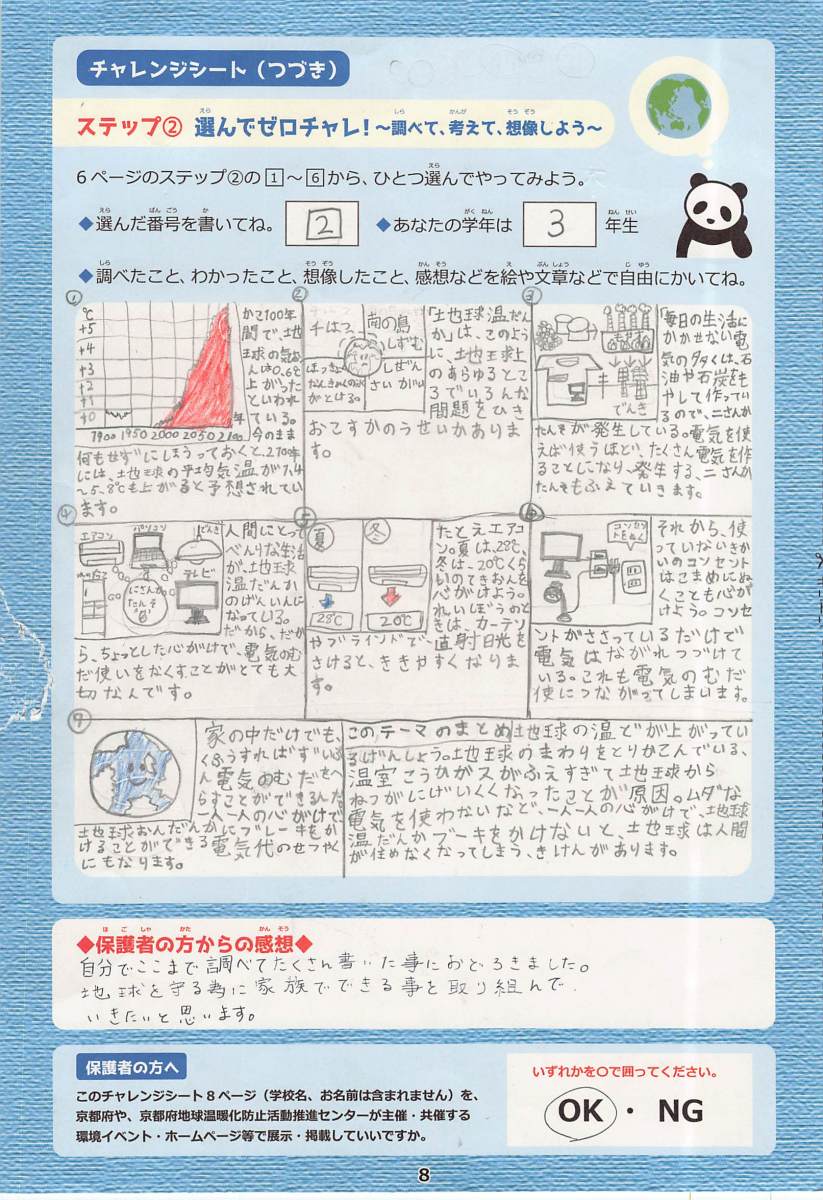 チャレンジシート(つづき)
ステップ② 選んでゼロチャレ!~調べて、考えて、想像しよう~
6ページのステップ②の1~6から、ひとつ選んでやってみよう。
◆選んだ番号を書いてね。 2 ◆あなたの学年は 3 年生
◆調べたこと、わかったこと、想像したこと、感想などを絵や文章などで自由にかいてね。
①
℃
+5
+4
+3
+2
+1
+0
1900 1950 2000 2050 2100 年
かこ100年
間で、地
球の気お
んは0.6℃
上がった
といわれ
ている。
今のまま
何もせずにしまうっておくと、2100年
には、地球の平均気温が1.4
~5.8℃も上がると予想されてい
ます。
②
南の島
しずむ
しぜん
さいがい
「地球温だん
か」は、このよう
に、地球上
のあらゆるとこ
ろでいろんな
問題をひき
おこすかのうせいがありま
す。
③
でんき
「毎日の生活に
かかせない電
気の多くは、石
油や石炭をも
やして作ってい
るので、二さんか
たんそが発生している。電気を使
えば使うほど、たくさん電気を作
ることになり、発生する、二さんか
たんそもふえていきます。
④
エアコン
パソコン
でんき
テレビ
にさんか
たんそ
人間にとって
べんりな生活
が、地球
温だんか
のげんいんに
なっている。
だから、だか
ら、ちょっとした心がけで、電気のむ
だ使いをなくすことがとても大
切なんです。
⑤
夏
冬
28℃
20℃
たとえエアコ
ン。夏は、28℃、
冬は、20℃くら
いのてきおんを
心がけよう。
れいぼうのと
きは、カーテン
やブラインドで、直射日光を
さけると、ききやすくなりま
す。
⑥
コンセン
トをぬく
それから、使
っていないきか
いのコンセント
はこまめにぬ
くことも心が
けよう。コンセ
ントがささっているだけで
電気はながれつづけて
いる。これも電気のむだ
使いにつながってしまいます。
⑦
家の中だけでも、
くふうすればずいぶ
ん電気のむだをへ
らすことができるんだ
一人一人の心がけで
地球おんだんかにブレーキをか
けることができる電気代のせつやく
にもなります。
このテーマのまとめ地球の温どが上がってい
るげんしょう。地球のまわりをとりかこんでいる、
温室こうかガスがふえすぎて地球から
ねつがにげいくくなったことが原因。ムダな
電気を使わないなど、一人一人の心がけで、地球
温だんかブーキをかけないと、地球は人間
が住めなくなってしまう、きけんがあります。
◆保護者の方からの感想◆
自分でここまで調べてたくさん書いた事におどろきました。
地球を守る為に家族でできる事を取り組んで
いきたいと思います。
保護者の方へ
このチャレンジシート8ページ(学校名、お名前は含まれません)を、
京都府や、京都府地球温暖化防止活動推進センターが主催・共催する
環境イベント・ホームページ等で展示・掲載していいですか。
いずれかを○で囲ってください。
OK ・ NG
8